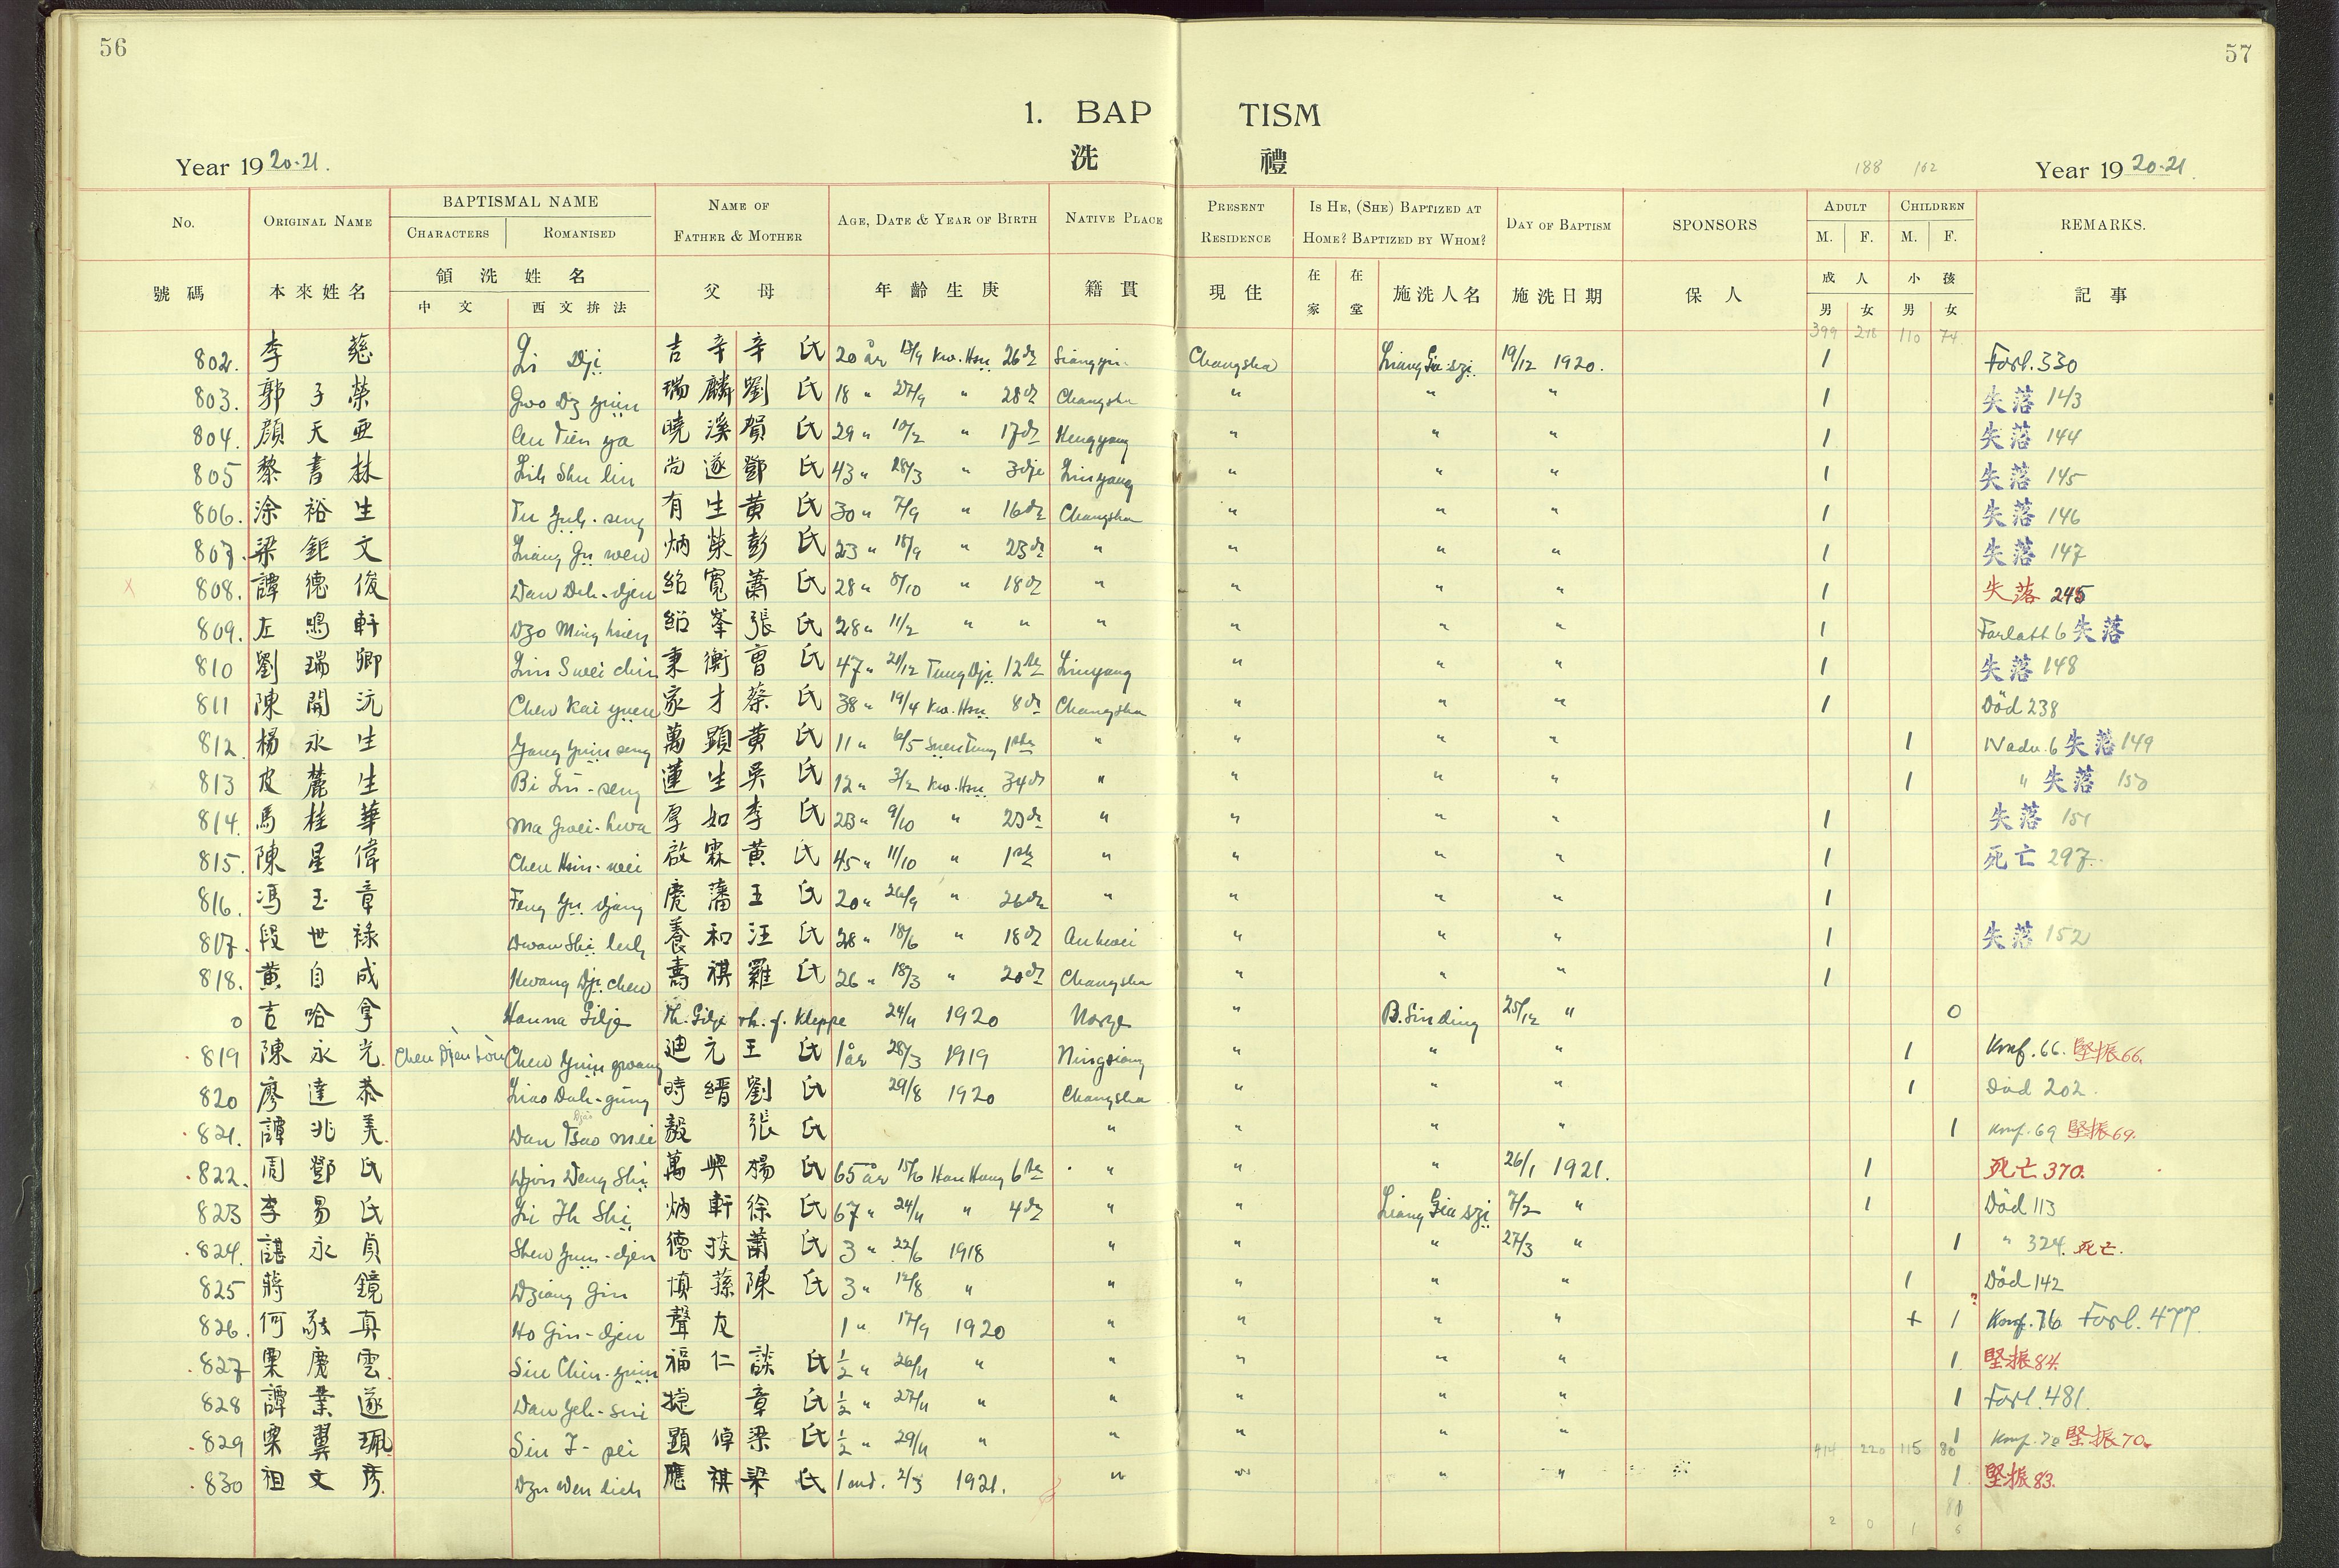 56
57
1. BAP TISM
洗 禮
188 102
Year 1920-21.
Year 1920-21.
No. ORIGINAL NAME BAPTISMAL NAME NAME OF FATHER & MOTHER AGE, DATE & YEAR OF BIRTH NATIVE PLACE PRESENT RESIDENCE IS HE, (SHE) BAPTIZED AT HOME? BAPTIZED BY WHOM? DAY OF BAPTISM SPONSORS ADULT CHILDREN REMARKS.
CHARACTERS ROMANISED M. F. M. F.
號碼 本來姓名 領洗姓名 父母 年齡生庚 籍貫 現住 在家 在堂 施洗人名 施洗日期 保人 成人 小孩 記事
中文 西文拚法 男 女 男 女
399 218 110 74
802. 李 慈 Li Dji 吉辛 辛氏 20 år 13/9 Kw. Hsu 26de Siangyin Changsha Liang Gia szi 19/12 1920. 1 Forl. 330
803. 郭子榮 Gwo Dz yuin 瑞麟 劉氏 18 " 27/9 " 28de Changsha " " " 1 失落 143
804. 顏天亜 Tien ya 曉溪 賀氏 29 " 10/2 " 17de Hengyang " " " 1 失落 144
805 黎書林 Lih Shu lin 尚遂 鄧氏 43 " 28/3 " 3dje Liuyang " " " 1 失落 145
806. 涂裕生 Tu Yuh-seng 有生 黃氏 30 " 7/9 " 16de Changsha " " " 1 失落 146
807. 梁鉅文 Liang Gu wen 炳榮 彭氏 23 " 18/9 " 23de " " " " 1 失落 147
808. 譚德俊 Dan Deh-djen 紹寬 蕭氏 28 " 8/10 " 18de " " " " 1 失落 245
809. 左鳴軒 Dzo Ming hsien 紹峯 張氏 28 " 11/2 " " " " " " 1 Forlatt 6 失落
810 劉瑞卿 Liu Suei chin 秉衡 曾氏 47 " 21/12 Tung Dji 12te Liuyang " " " 1 失落 148
811 陳開沅 Chen Kai yuen 家才 蔡氏 38 " 19/4 Kw. Hsu 8de Changsha " " " 1 Död 238
812. 楊永生 Yang Yuin seng 萬顕 黃氏 11 " 6/5 Suen Tung 1ste " " " " 1 Nadv. 6 失落 149
813 皮麓生 Bi Lu-seng 蓮生 吳氏 12 " 3/2 Kw. Hsu 34de " " " " 1 " 失落 150
814. 馬桂華 Ma Gwei-hwa 厚如 李氏 23 " 9/10 " 23de " " " " 1 失落 151
815. 陳星偉 Chen Hsin-wei 啟霖 黃氏 45 " 11/10 " 1ste " " " " 1 死亡 297.
816. 馮玉章 Feng Yu djang 慶藩 王氏 20 " 26/9 " 26de " " " " 1
817. 段世祿 Dwan Shi luh 養和 汪氏 28 " 18/6 " 18de Anhwei " " " 1 失落 152
818. 黃自成 Hwang Dji chen 壽祺 羅氏 26 " 18/3 " 20de Changsha " " " 1
0 吉哈拿 Hanna Gilje Th. Gilje Th. f. Kleppe 24/11 1920 Norge " B. Sinding 25/12 " 0
819 陳永光 Chen Yuin gwang 迪元 王氏 1 år 28/3 1919 Ningsiang " " " 1 Konf. 66. 堅振66.
820 廖達恭 Liao Dah-gung 時縉 劉氏 29/8 1920 Changsha " " " 1 Död 202.
821. 譚兆美 Dan Tsao mei 毅 張氏 " " " " 1 Konf. 69 堅振69.
822. 周鄧氏 Djou Deng Shi 萬興 楊氏 65 år 15/6 Han Hung 6te " " " 26/1 1921. 1 死亡 370.
823 李易氏 Li Ih Shi 炳軒 徐氏 67 " 24/11 " 4de " " Liang Gia szi 7/2 " 1 Död 113
824. 諶永貞 Shen Yuin-djen 德 蕭氏 3 " 22/6 1918 " " " 27/3 " 1 " 324. 死亡.
825 蔣 鏡 Dziang Gin 慎蓀 陳氏 3 " 12/8 " " " " " 1 Död 142
826. 何敬真 Ho Gin-djen 聲左 1 " 17/9 1920 " " " " + 1 Konf. 76 Forl. 477.
827 栗慶雲 Chin-yuin 福仁 談氏 1/2 " 26/11 " " " " " 1 堅振84.
828 譚業遂 Dan Yeh-sui 掟 章氏 1/2 " 27/11 " " " " " 1 Forl. 481.
829 栗翼珮 I-pei 顕倬 梁氏 1/2 " 29/11 " " " " " 1 Konf. 70 堅振70.
414 220 115 80
830 祖文彦 Dzu Wen 應祺 梁氏 1 md. 2/3 1921. " " " " 1 堅振83.
81
2 0 1 6